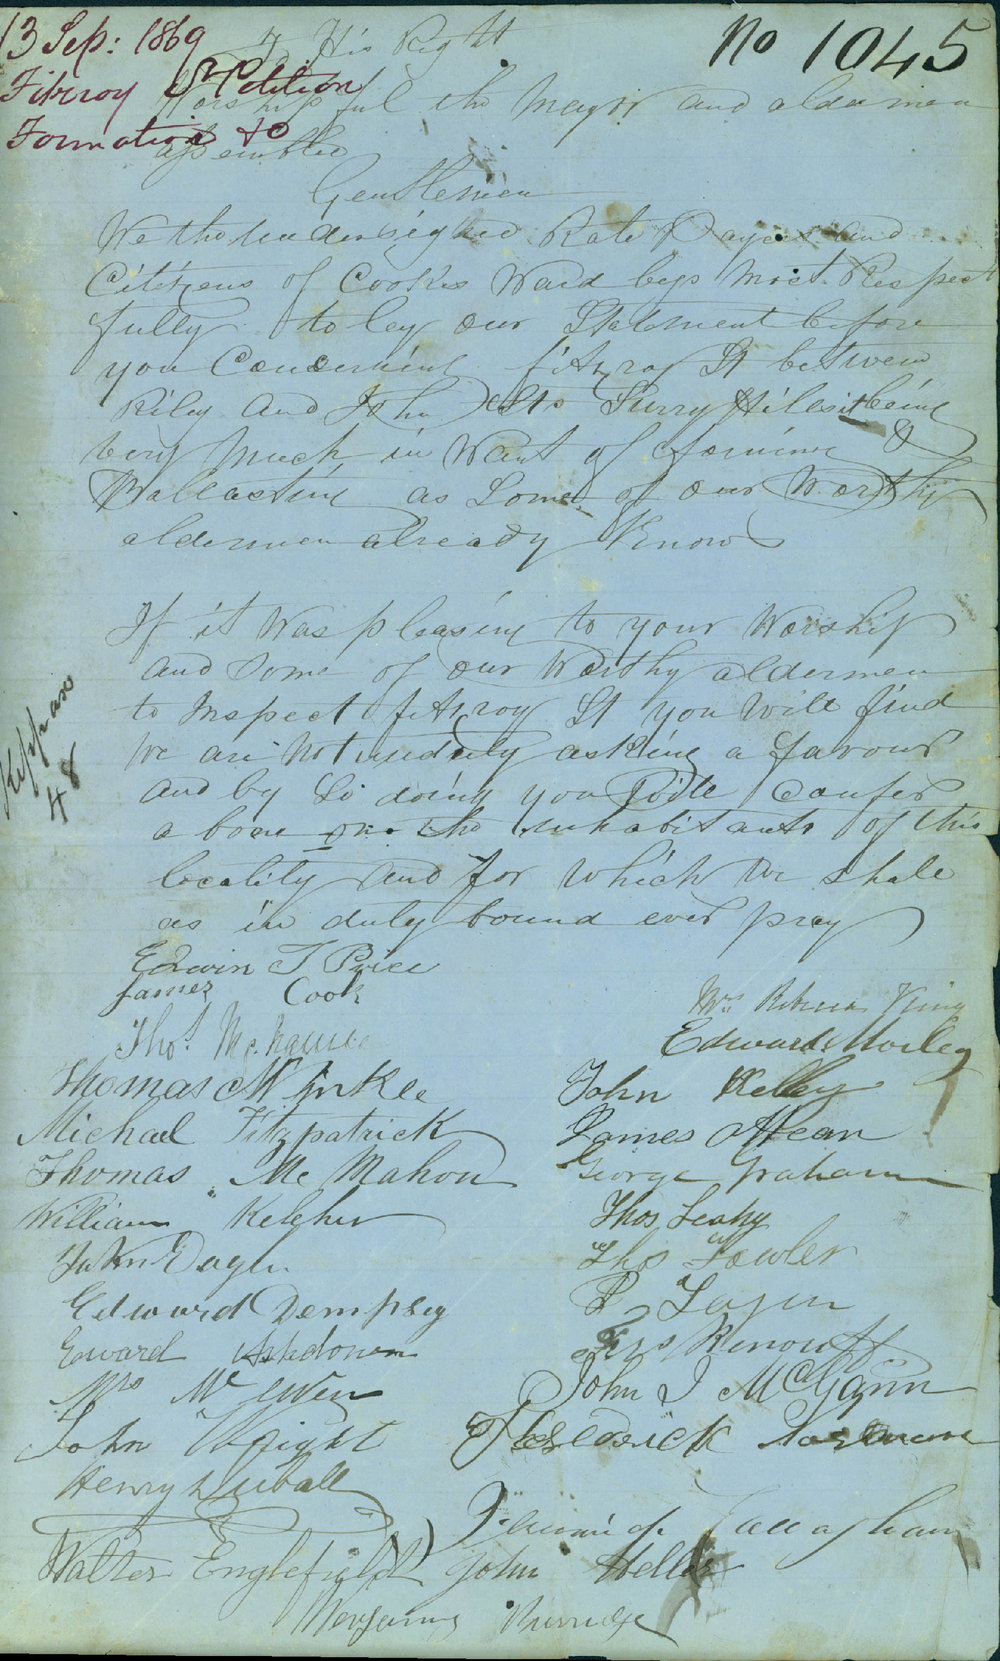 13 Sep: 1869
No 1045
Fitzroy St Petition
Formation &c
To His Right
Worshipful the Mayor and aldermen
assembled
Gentlemen
We the undersigned Rate Payers and
Citizens of Cooks Ward begs most Respect
fully to lay our Statement before
you Concerning fitzroy St between
Riley and John Sts Surry Hills it being
very much in Want of forming &
Ballasting as Some of our Worthy
aldermen already Know
If it Was pleasing to your Worship
and some of our Worthy aldermen
to Inspect fitzroy St you Will find
We are Not unduly asking a favour
and by So doing you Will Confer
a boon on the inhabitants of this
locality and for Which We shall
as in duty bound ever pray
Kippax
48
Edwin T Price
James Cook
Mrs Rebecca King
Thos.
Edward Morley
Thomas
John Kelley
Michael Fitzpatrick
James Hean
Thomas Mc Mahon
George Graham
William Kelcher
Thos Leahy
John
Thos Fowler
Edward Dempsey
P
Edward Ashdown
Renouf
Mrs Mc Ewen
John J McGann
John Wright
Frederick
Henry
Callaghan
Walter Englefield
John